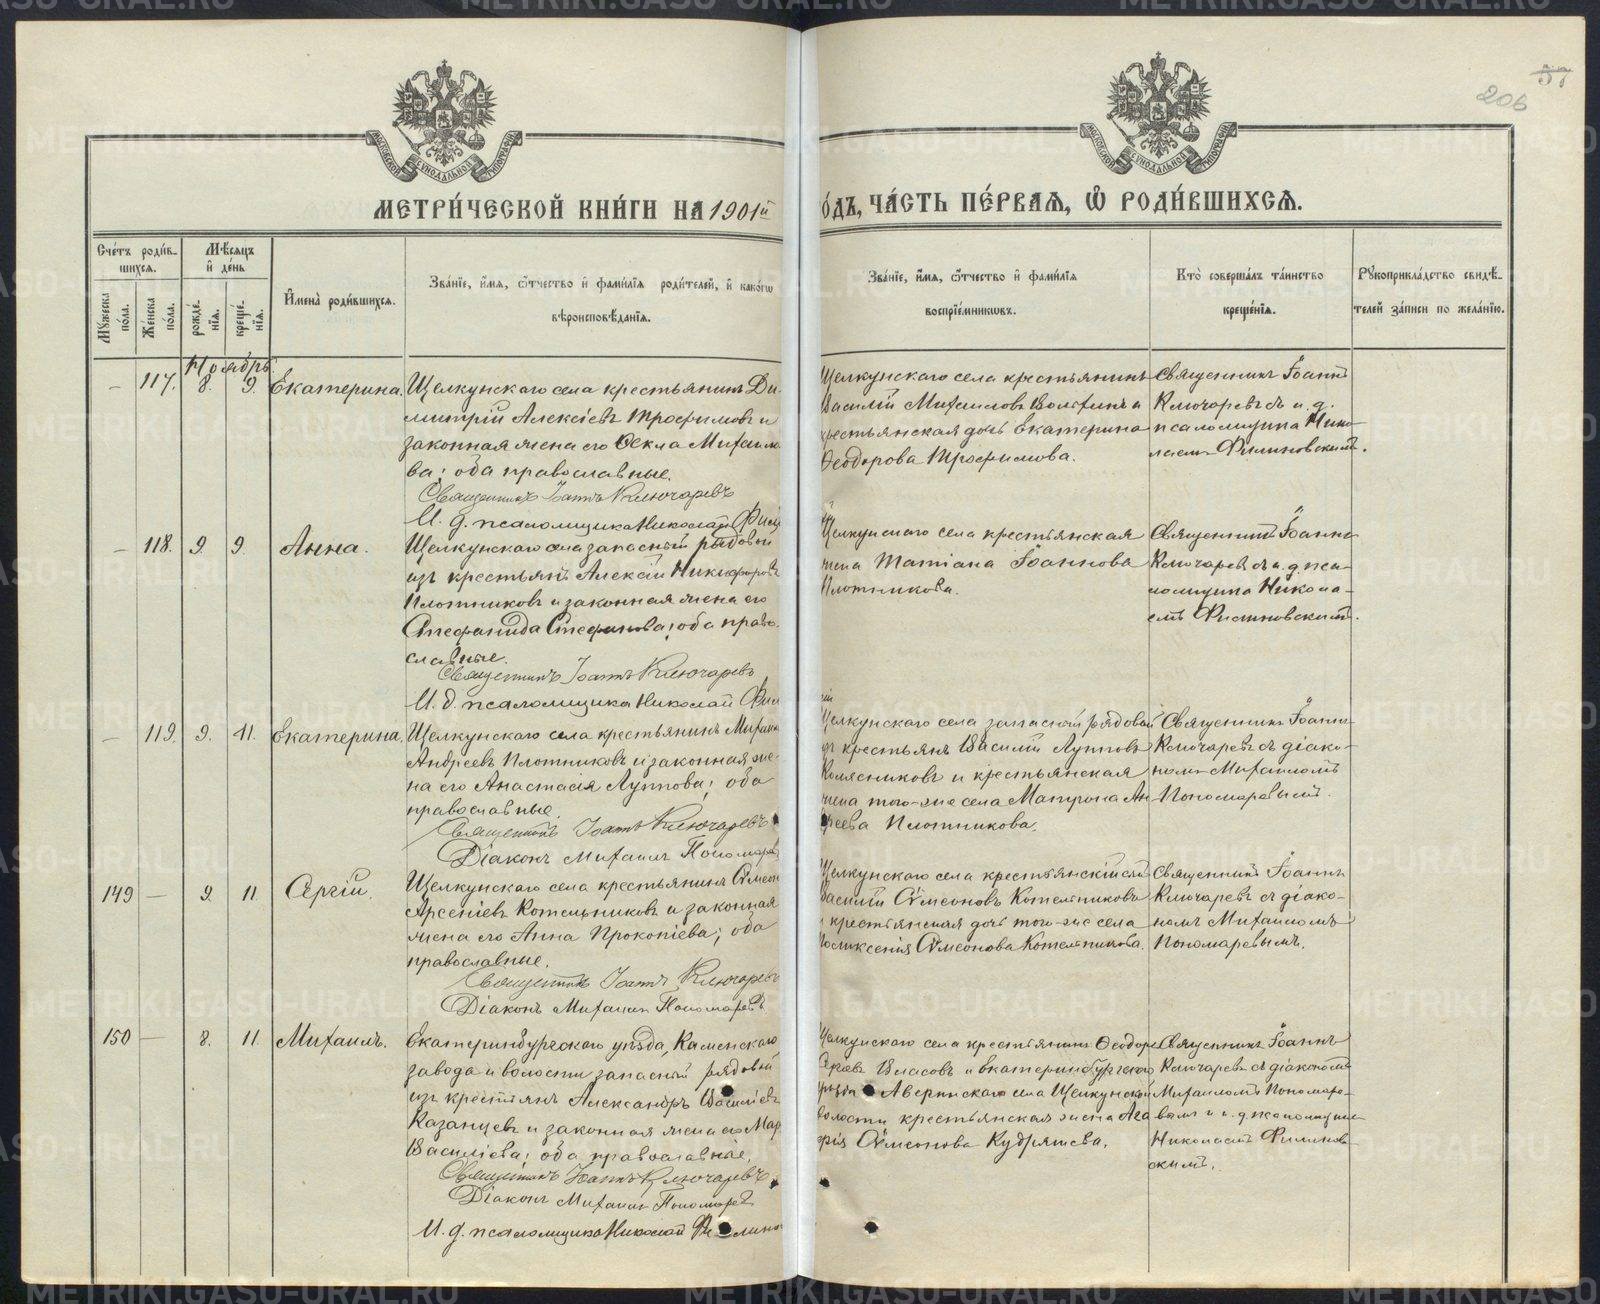 57
206
МЕТРИ́ЧЕСКОЙ КНИ́ГИ НА 1901й
О́ДЪ, ЧА́СТЬ ПЕ́РВАЯ, Ѡ РОДИ́ВШИХСЯ.
Сче́тъ роди́в-
шихся.
Мѣ́сяцъ
и҆ де́нь
Мꙋ́жеска по́ла.
Же́нска по́ла.
рожде́-
нїя.
креще́-
нїя.
И҆мена̀ роди́вшихся.
Зва́нїе, и҆́мя, ѻ҆́тчество и҆ фами́лїя роди́телей, и҆ како́гѡ
вѣроисповѣ́данїя.
Зва́нїе, и҆́мя, ѻ҆́тчество и҆ фами́лїя
воспрїе́мникѡвъ.
Кто̀ соверша́лъ та́инство
креще́нїя.
Рꙋкоприкла́дство свидѣ́-
телей за́писи по жела́нїю.
Ноябрь
— 117. 8. 9. Екатерина.
Щелкунскаго села крестьянинъ Ди-
митрій Алексіевъ Трофимовъ и
законная жена его Ѳекла Михаило-
ва; оба православные.
Священникъ Іоаннъ Ключаревъ
И. д. псаломщика Николай
Щелкунскаго села крестьянинъ
Василій Михаиловъ и
крестьянская дочь Екатерина
Ѳеодорова Трофимова.
Священникъ Іоаннъ
Ключаревъ съ и. д.
псаломщика Нико-
лаемъ Филиновскимъ.
— 118. 9. 9. Анна.
Щелкунскаго села запасный рядовой
изъ крестьянъ Алексій Никифоровъ
Плотниковъ и законная жена его
Стефанида Стефанова; оба право-
славные.
Священникъ Іоаннъ Ключаревъ
И. д. псаломщика Николай Фили
Щелкунскаго села крестьянская
жена Татіана Іоаннова
Плотникова.
Священникъ Іоаннъ
Ключаревъ съ и. д. пса-
ломщика Никола-
емъ Филиновскимъ.
— 119. 9. 11. Екатерина.
Щелкунскаго села крестьянинъ Михаилъ
Андреевъ Плотниковъ и законная же-
на его Анастасія Луппова; оба
православные.
Священникъ Іоаннъ Ключаревъ
Діаконъ Михаилъ Пономарев
Щелкунскаго села запасный рядовой
изъ крестьянъ Василій Лупповъ
Колясниковъ и крестьянская
жена того-же села Матрона Ан-
дреева Плотникова.
Священникъ Іоаннъ
Ключаревъ съ діако-
номъ Михаиломъ
Пономаревымъ.
149 — 9. 11 Сергій.
Щелкунскаго села крестьянинъ Сѵмеонъ
Арсеніевъ Котельниковъ и законная
жена его Анна Прокопіева; оба
православные.
Священникъ Іоаннъ Ключаревъ
Діаконъ Михаилъ Пономаревъ
Щелкунскаго села крестьянскій сынъ
Василій Сѵмеоновъ Котельниковъ
и крестьянская дочь того-же села
Сѵмеонова Котельникова.
Священникъ Іоаннъ
Ключаревъ съ діако-
номъ Михаиломъ
Пономаревымъ.
150 — 8. 11 Михаилъ.
Екатеринбургскаго уѣзда, Каменскаго
завода и волости запасный рядовой
изъ крестьянъ Александръ Василіевъ
Казанцевъ и законная жена его Мар
Василіева; оба православные.
Священникъ Іоаннъ Ключаревъ
Діаконъ Михаилъ Пономарев
И. д. псаломщика Николай Филинов
Щелкунскаго села крестьянинъ Ѳеодоръ
Власовъ и екатеринбургскаго
уѣзда Аверинскаго села Щелкунской
волости крестьянская жена Ага-
фія Сѵмеонова Кудряшева.
Священникъ Іоаннъ
Ключаревъ съ діакономъ
Михаиломъ Пономаре-
вымъ и и. д. псаломщика
Николаемъ Филинов-
скимъ.